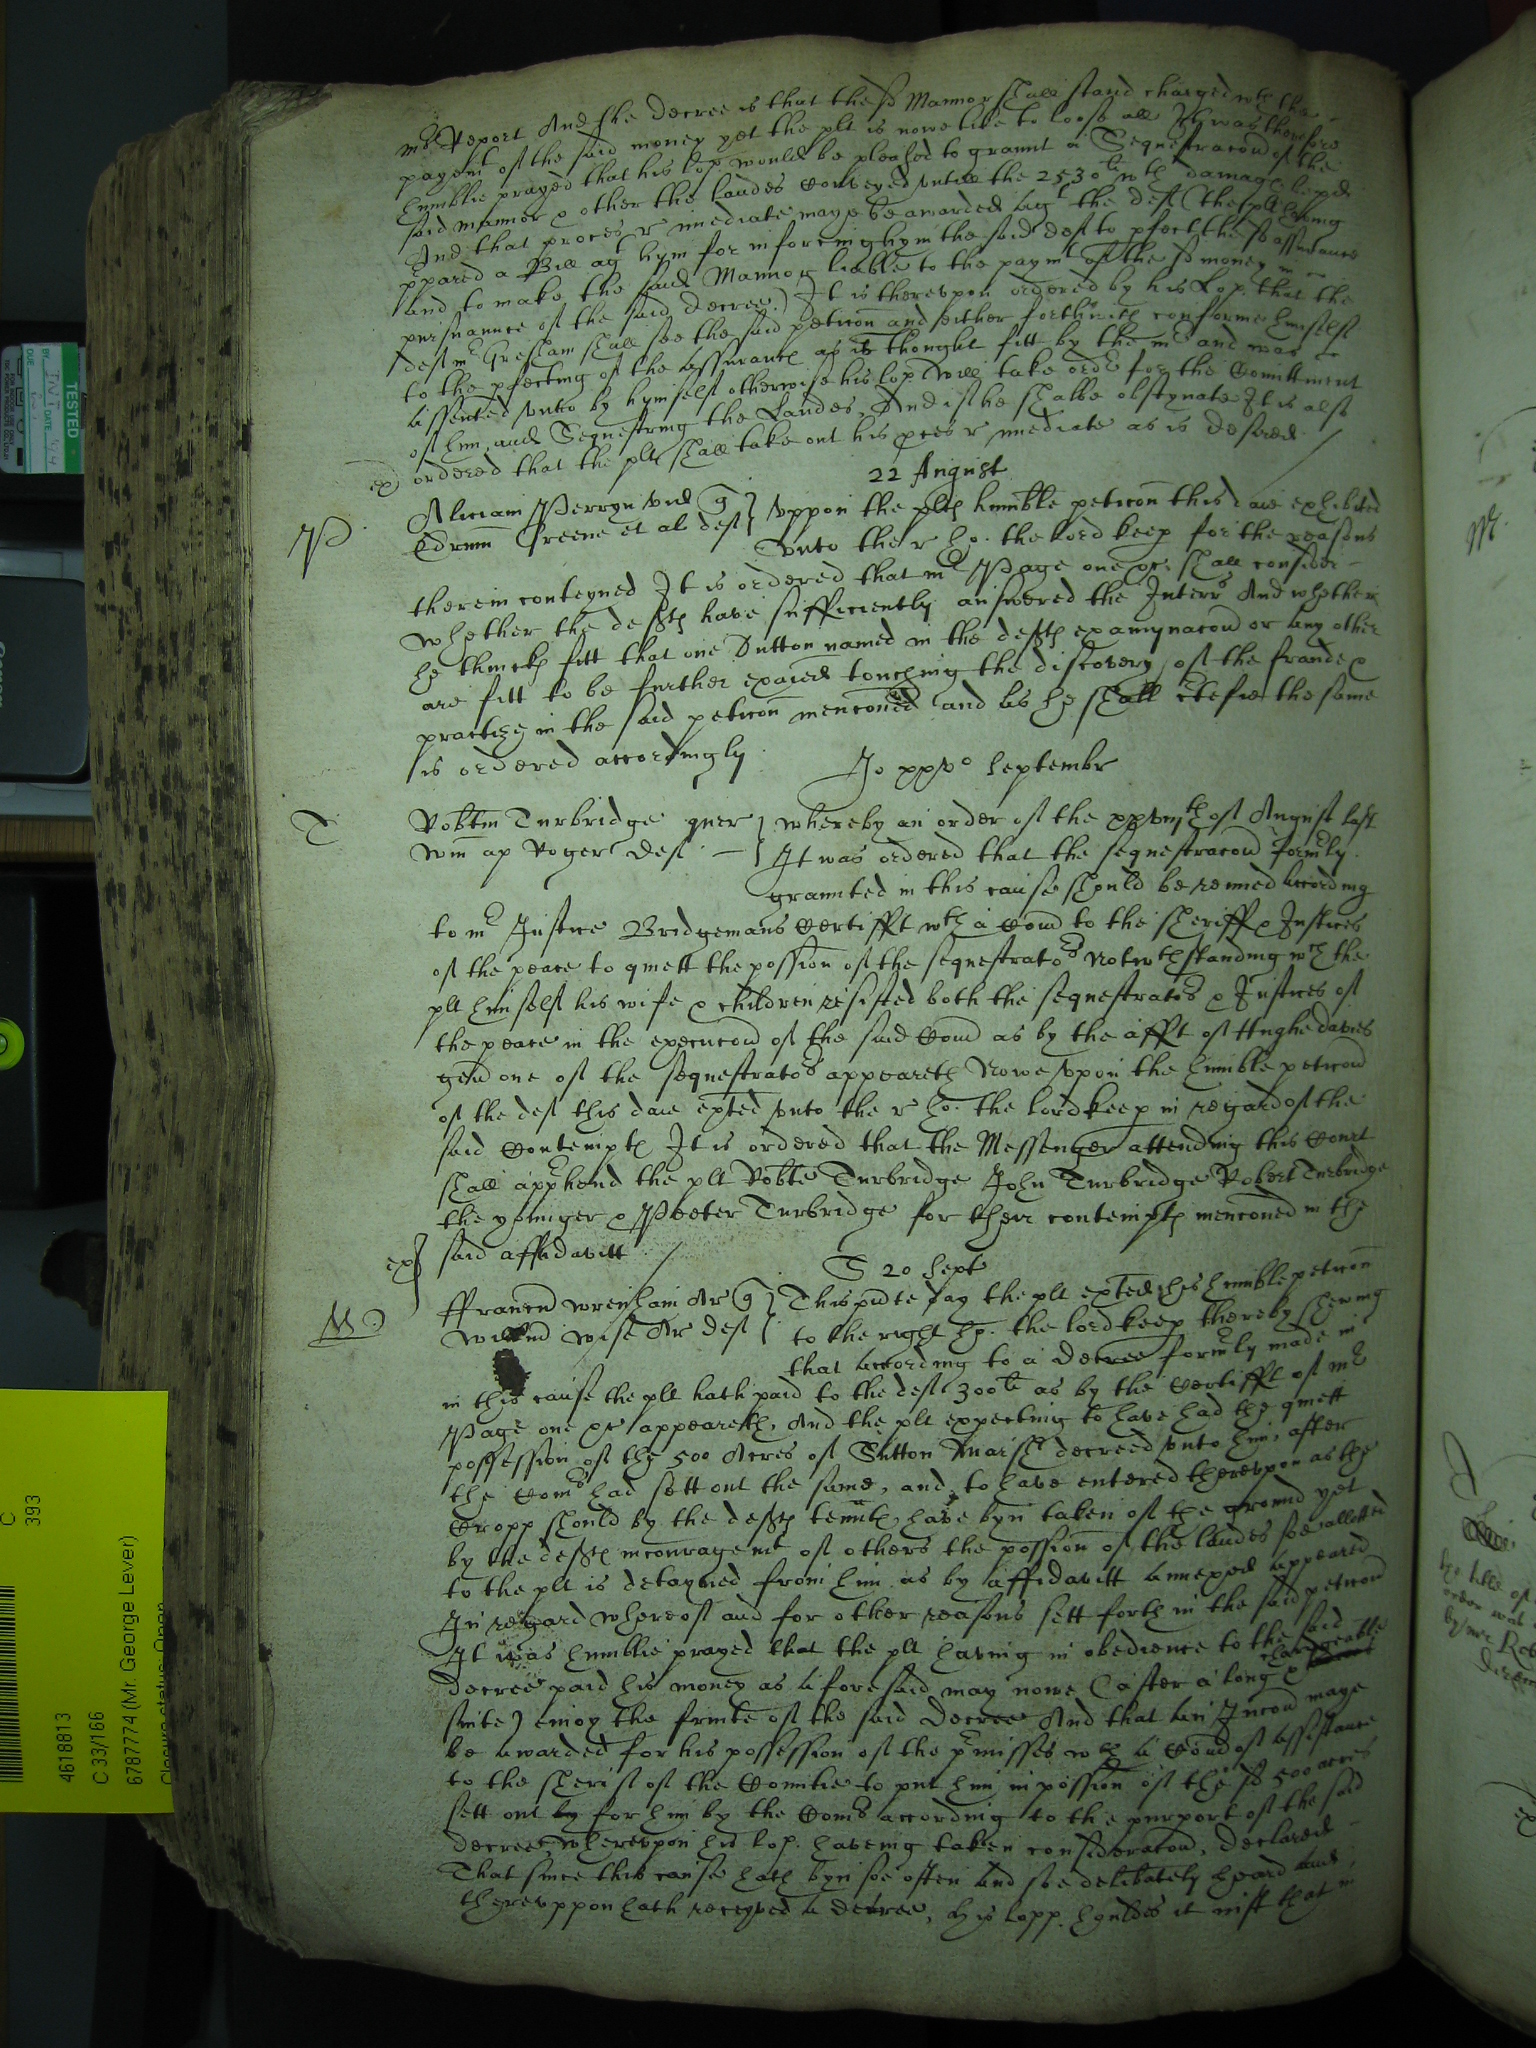 mr Report And the decree is that the sd Mannor shall stand charged wth the
paymt of the said money yet the plt is nowe like to loose all It was therefore
humblie prayed that his lop would be pleased to graunt a Sequestracon of the
said mannor & other the landes conveyed untill the 2530li wth damages be pd
And that proces r imediate maye be awarded agt the deft (the plt having
ppared a Bill agt hym for inforcing hym the said deft to pfect the sd assurance
and to make the said Mannor liable to the paymt of the sd money in
pursuance of the said decree) It is thereupon ordered by his Lop. that the
deft mr Gresham shall see the said peticon and either forthwith conforme himself
to the pfecting of the assurance as is thought fitt by the mr and was
assented unto by hymself otherwise his lop will take ordr for the Comittment
of him, and Sequestring the Landes, And if he shalbe obstynate It is also
ordered that the plt shall take out his pces r imediate as is desired
ex
22 August
P
Aliciam Perryn vid q Uppon the plts humble peticon this daie exhibited
Edrum Greene et al deft unto the r ho. the lord keep for the reasons
therein conteyned It is ordered that mr Page one &c. shall consider
whether the defts have sufficiently answered the Interrs And whether
he thincks fitt that one Sutton named in the defts examynacon or any other
are fitt to be further exaied touching the discovery of the fraude &
practize in the said peticon menconed and as he shall ctefie the same
is ordered accordingly.
Jo xxvo Septembr
T
Robtm Turbridge quer whereby an order of the xxviijth of August last
Wm ap Roger deft It was ordered that the sequestracon formrly
graunted in this cause should be renued according
to mr Justice Bridgemans Certifft wth a Com to the sheriff & Justices
of the peace to quiett the possion of the sequestrators Notwthstanding wch the
plt himself his wife & children resisted both the sequestrators & Justices of
the peace in the execucon of the said Com as by the afft of Hughe davies
gen one of the sequestrators appeareth Nowe upon the humble peticon
of the deft this daie exted unto the r ho. the lord keep in regard of the
said Contempts It is ordered that the Messenger attending this Court
shall apphend the plt Robte Turbridge John Turbridge Robert Turbridge
the younger & Peeter Turbridge for their contempts menconed in the
said affidavitt
ex
S 20 Sept
W
ffrancm wrenham Ar q This pnte day the plt exted his humble peticon
Willm wise Ar deft to the right ho. the lord keep thereby shewing
that according to a decree formrly made in
in this cause the plt hath paid to the deft 300li as by the Certifft of mr
Page one &c appeareth, And the plt expecting to have had the quiett
possession of the 500 Acres of Sutton Marsh decreed unto him, after
the Comrs had sett out the same, and to have entered thereupon as the
Cropp should by the defts tennts have byn taken of the ground yet
by the defts incouragemt of others the possion of the landes soe allotted
to the plt is detayned from him as by affidavitt annexed appeared
In regard whereof and for other reasons sett forth in the said peticon
It was humblie prayed that the plt having in obedience to the said
Decree paid his money as aforesaid may nowe (after a long & chardgeable
suite) enioy the fruite of the said Decree And that an Incon maye
be awarded for his possession of the pmisses wth a Com of assistance
to the sherif of the Countie to put him in possion of the sd 500 acres
sett out by for him by the Comrs according to the purport of the said
decree, whereupon his lop. haveing taken consideracon, declared
That since this cause hath byn soe often and soe delibately heard and
thereuppon hath receyved a decree, His lopp. houldes it iust that in
TESTED
BY
DATE
DUE
C
393
4618813
C 33/166
6787774 (Mr. George Lever)
Closure status: Open